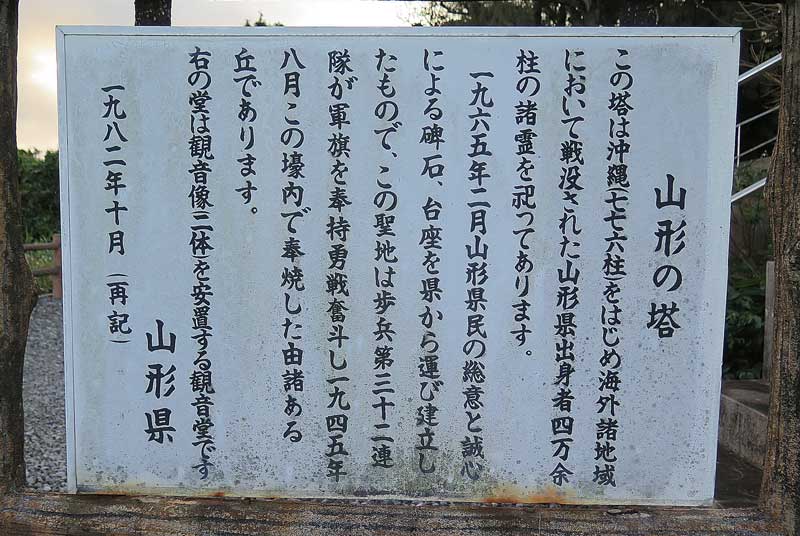 山形の塔
この塔は沖縄(七七六柱)をはじめ海外諸地域
において戦没された山形県出身者四万余
柱の諸霊を祀ってあります。
一九六五年二月山形県民の総意と誠心
による碑石、台座を県から運び建立し
たもので、この聖地は歩兵第三十二連
隊が軍旗を奉持勇戦奮斗し一九四五年
八月この壕内で奉焼した由諸ある
丘であります。
右の堂は観音像二体を安置する観音堂です
一九八二年十月(再記)
山形県